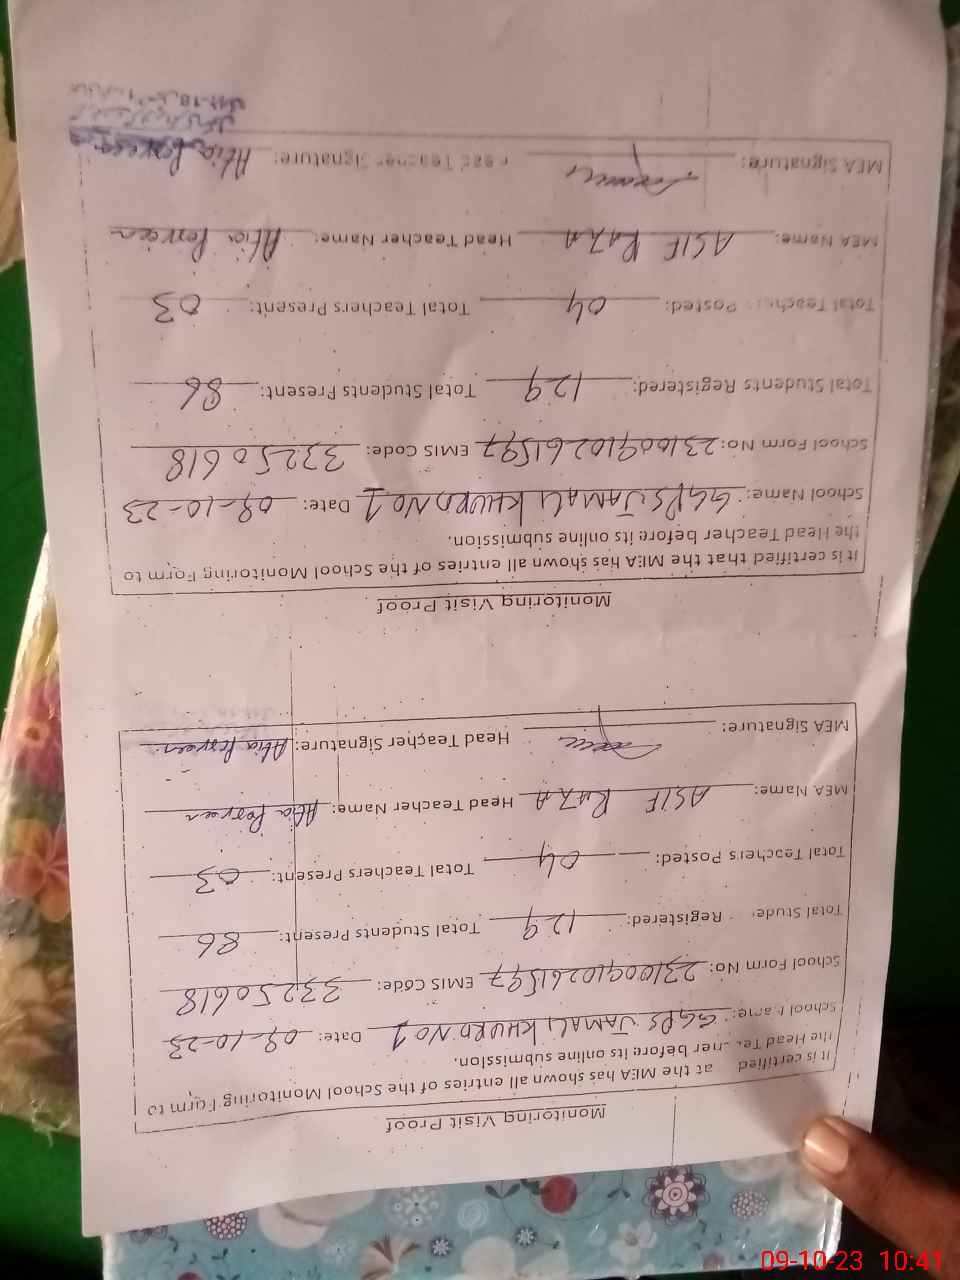 Monitoring Visit Proof
It is certified at the MEA has shown all entries of the School Monitoring Form to
the Head before its online submission.
School Name: GGPS JAMALI KHURD NO 1 Date: 09-10-23
School Form No: 23100910261597 EMIS Code: 33250618
Total Registered: 129 Total Students Present: 86
Total Teachers Posted: 04 Total Teachers Present: 03
MEA Name: ASIF RAZA Head Teacher Name: Atia Perveen
MEA Signature: Head Teacher Signature: Atia Perveen
Monitoring Visit Proof
It is certified that the MEA has shown all entries of the School Monitoring Form to
the Head Teacher before its online submission.
School Name: GGPS JAMALI KHURD NO 1 Date: 09-10-23
School Form No: 23100910261597 EMIS Code: 33250618
Total Students Registered: 129 Total Students Present: 86
Total Teachers Posted: 04 Total Teachers Present: 03
MEA Name: ASIF RAZA Head Teacher Name: Atia Perveen
MEA Signature: Head Teacher Signature: Atia Perveen
09-10-23 10:41